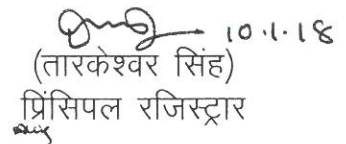 10.1.18
(तारकेश्वर सिंह)
प्रिंसिपल रजिस्ट्रार